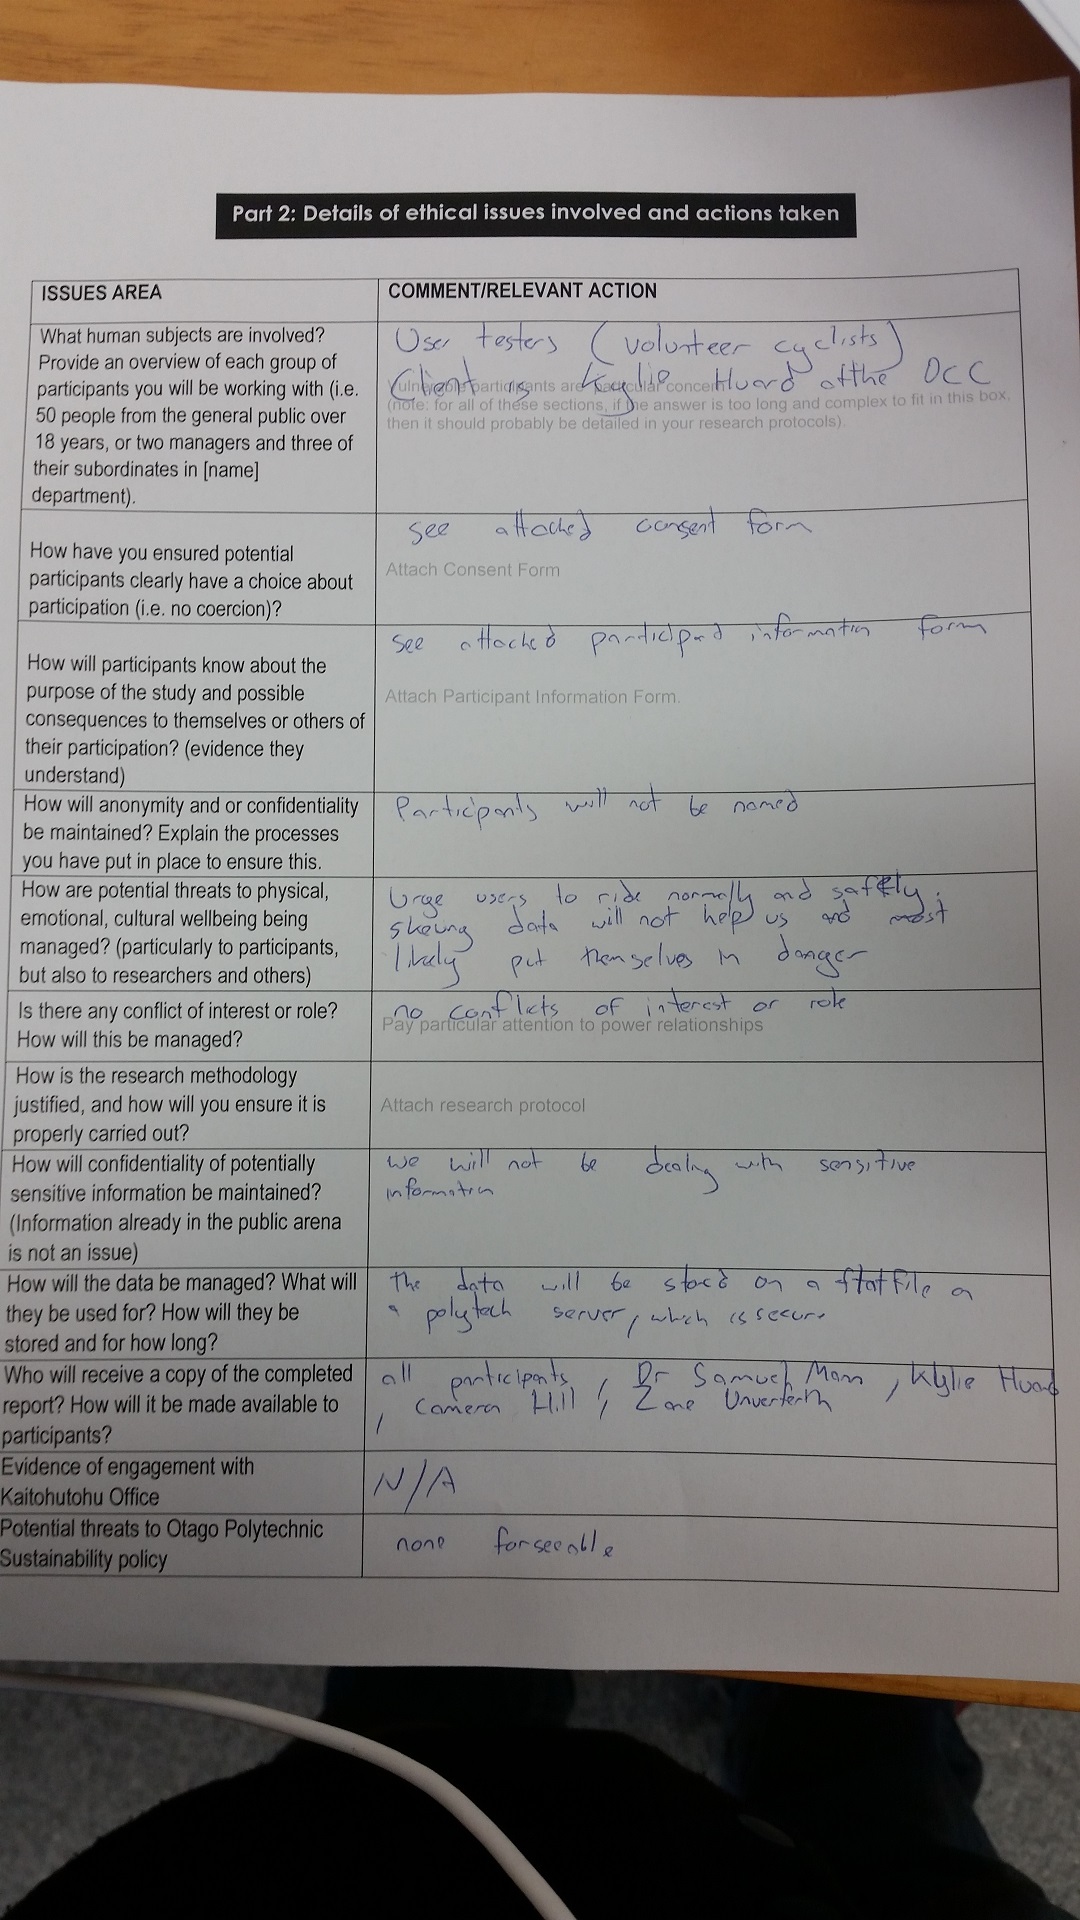 Part 2: Details of ethical issues involved and actions taken
ISSUES AREA
COMMENT/RELEVANT ACTION
What human subjects are involved?
Provide an overview of each group of
participants you will be working with (i.e.
50 people from the general public over
18 years, or two managers and three of
their subordinates in [name]
department).
User testers (volunteer cyclists)
Client, Kylie Huard of the DCC
participants are particular concern
(note: for all of these sections, if the answer is too long and complex to fit in this box,
then it should probably be detailed in your research protocols).
How have you ensured potential
participants clearly have a choice about
participation (i.e. no coercion)?
see attached consent form
Attach Consent Form
How will participants know about the
purpose of the study and possible
consequences to themselves or others of
their participation? (evidence they
understand)
see attached participant information form
Attach Participant Information Form.
How will anonymity and or confidentiality
be maintained? Explain the processes
you have put in place to ensure this.
Participants will not be named
How are potential threats to physical,
emotional, cultural wellbeing being
managed? (particularly to participants,
but also to researchers and others)
Urge users to ride normally and safely;
skewing data will not help us and most
likely put themselves in danger
Is there any conflict of interest or role?
How will this be managed?
no conflicts of interest or role
Pay particular attention to power relationships
How is the research methodology
justified, and how will you ensure it is
properly carried out?
Attach research protocol
How will confidentiality of potentially
sensitive information be maintained?
(Information already in the public arena
is not an issue)
we will not be dealing with sensitive
information
How will the data be managed? What will
they be used for? How will they be
stored and for how long?
the data will be stored on a flat file a
a polytech server, which is secure
Who will receive a copy of the completed
report? How will it be made available to
participants?
all participants, Dr Samuel Mann, Kylie Huard
, Hill, Zane
Evidence of engagement with
Kaitohutohu Office
N/A
Potential threats to Otago Polytechnic
Sustainability policy
none forseeable